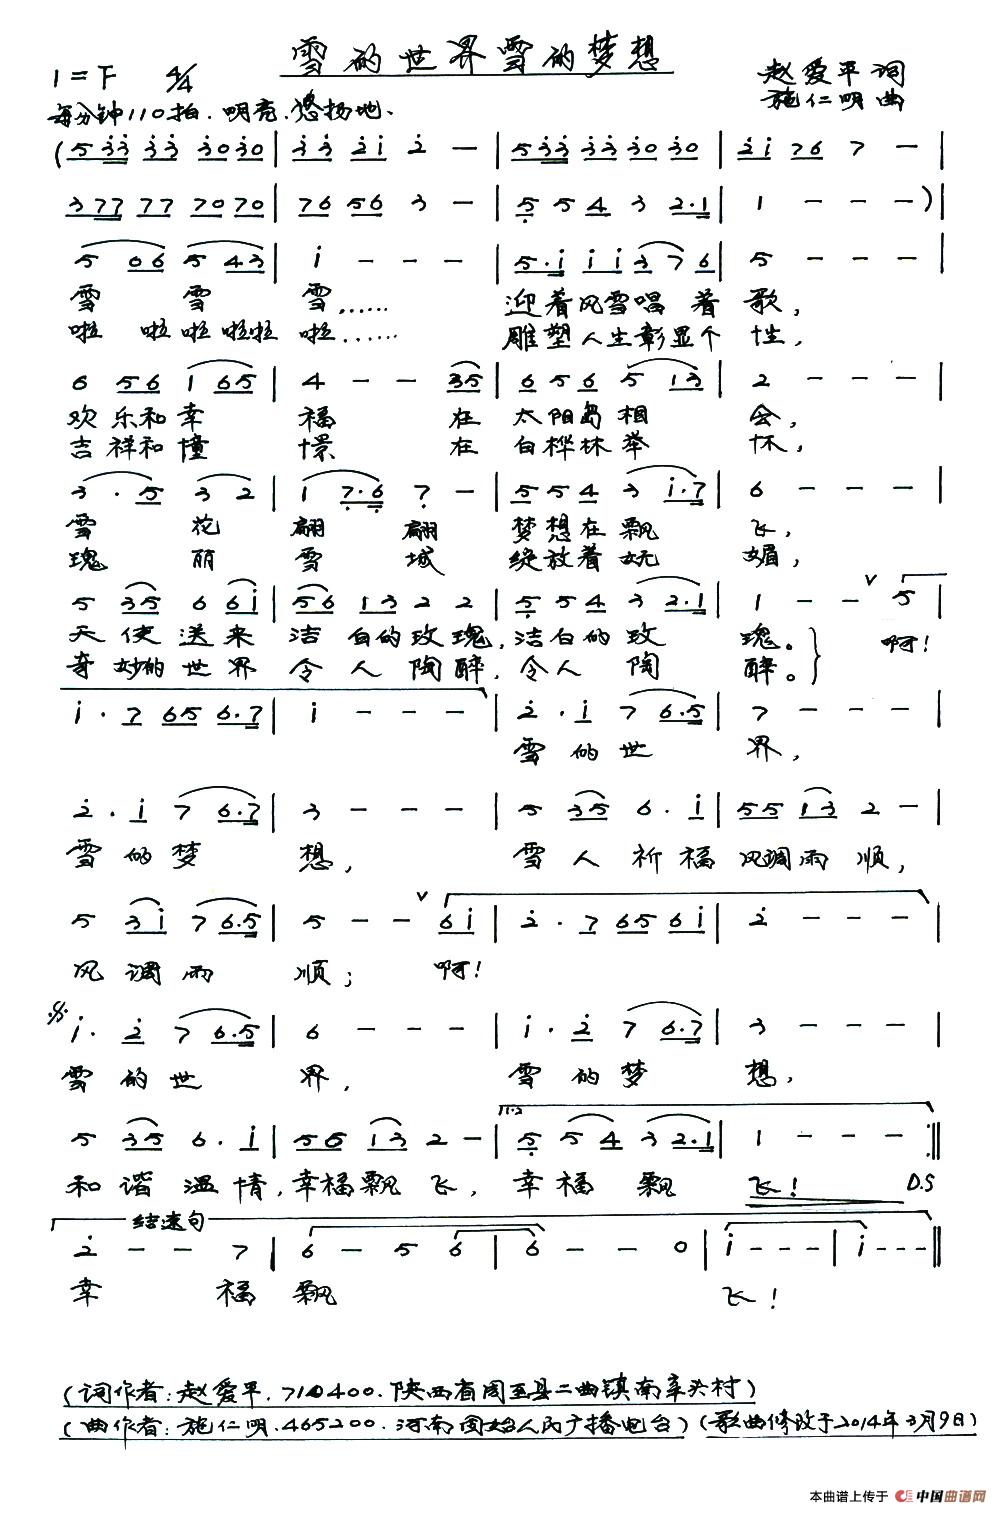 雪的世界雪的梦想
1=F 4/4
赵爱平词
施仁明曲
每分钟110拍.明亮.悠扬地.
(5 3̇3̇ 3̇3̇ 3̇03̇0 | 3̇3̇ 2̇1̇ 2̇ — | 5 3̇3̇ 3̇3̇ 3̇03̇0 | 2̇1̇ 76 7 — |
377 77 7070 | 76 56 3 — | 5̣ 5 4 3 2·1 | 1 — — — )|
5 06 5 43 | 1̇ — — — | 5·1̇ 1̇1̇3 7 6 | 5 — — — |
雪 雪 雪…… 迎着风雪唱着歌,
啦 啦啦啦啦 啦…… 雕塑人生彰显个性,
6 56 1 65 | 4 — — 35 | 6 5 6 5 13 | 2 — — — |
欢乐和幸福在太阳岛相会,
吉祥和憧憬在白桦林举怀,
3·5 3 2 | 1 7̣·6̣ 7̣ — | 5 5 4 3 1̇·7 | 6 — — — |
雪花翩翩 梦想在飘飞,
瑰丽雪城 绽放着妩媚,
5 35 6 61̇ | 56 13 2 2 | 5̣ 5 4 3 2·1 | 1 — — ∨ 5 |
天使送来洁白的玫瑰,洁白的玫瑰。 啊!
奇妙的世界令人陶醉,令人陶醉。
1̇·7 65 6·7 | 1̇ — — — | 2̇·1̇ 7 6·5 | 7 — — — |
雪的世界,
2̇·1̇ 7 6·7 | 3 — — — | 5 35 6·1̇ | 55 13 2 — |
雪的梦想, 雪人祈福风调雨顺,
5 31̇ 7 6·5 | 5 — — ∨ 61̇ | 2̇·7 65 61̇ | 2̇ — — — |
风调雨顺; 啊!
𝄋 1̇·2̇ 7 6·5 | 6 — — — | 1̇·2̇ 7 6·7 | 3 — — — |
雪的世界, 雪的梦想,
1.2
5 35 6·1̇ | 56 13 2 — | 5̣ 5 4 3 2·1 | 1 — — — :||
和谐温情,幸福飘飞,幸福飘飞! D.S
结束句
2̇ — — 7 | 6 — 5 6 | 6 — — 0 | 1̇ — — — | 1̇ — — — ||
幸福飘飞!
(词作者:赵爱平.710400.陕西省周至县二曲镇南辛头村)
(曲作者:施仁明.465200.河南固始人民广播电台)(歌曲修改于2014年3月9日)
本曲谱上传于 中国曲谱网